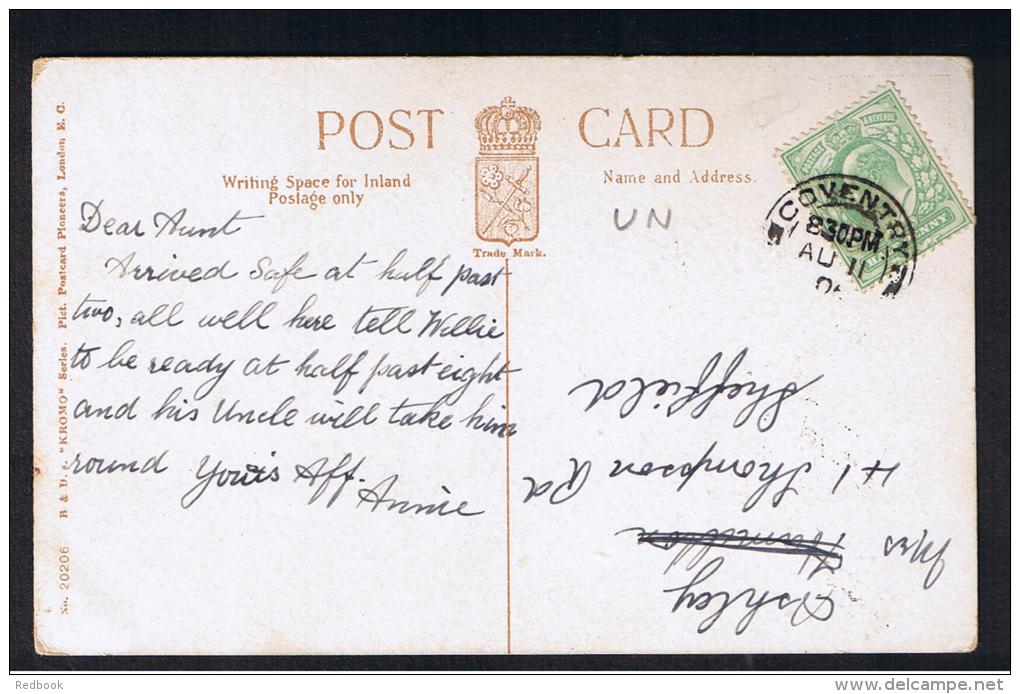 POST CARD
Writing Space for Inland
Postage only
Name and Address.
Trade Mark.
UN
COVENTRY
8.30PM
AU 11
Dear Aunt
Arrived Safe at half past
two, all well here tell Willie
to be ready at half past eight
and his Uncle will take him
round Yours Aff.
Annie
Ashley
Mrs
41 Thompson Rd
Sheffield
No. 20206 B & D. s. "KROMO" Series. Pict. Postcard Pioneers, London E. C.
Redbook
delcampe.net